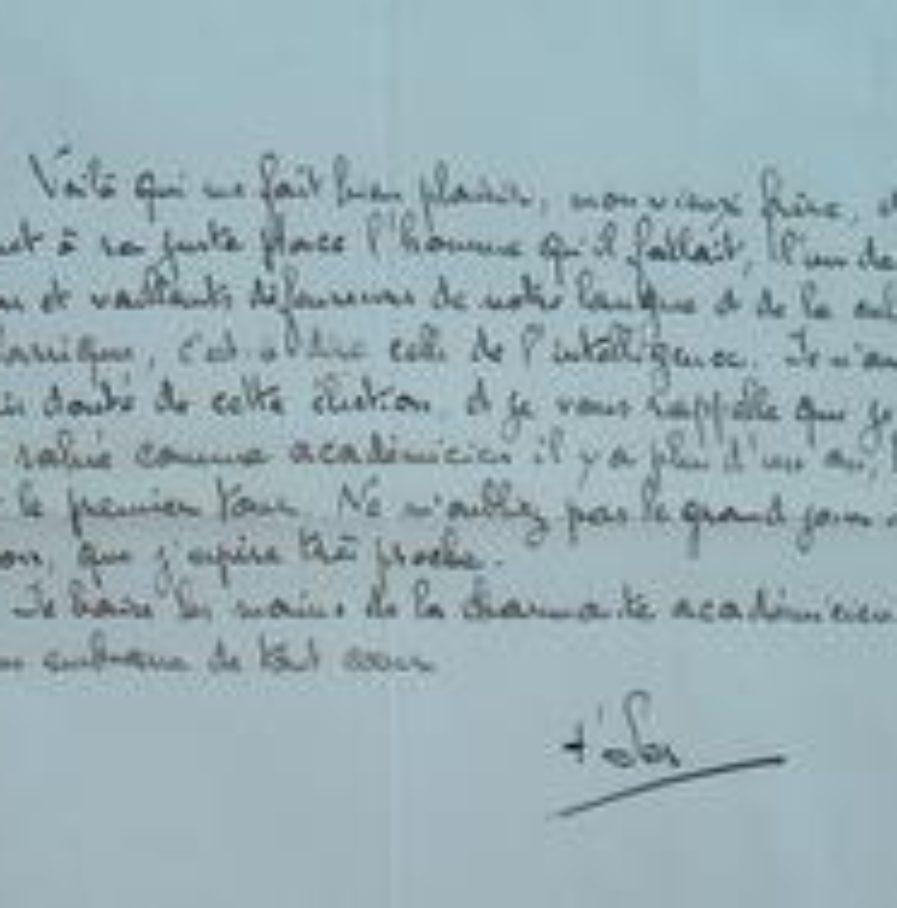 Voilà qui me fait bien plaisir, mon vieux frère,
à sa juste place l'homme qu'il fallait, l'un de
et vaillants défenseurs de notre langue et de la
c'est-à-dire celle de l'intelligence. Je n'
douté de cette élection et je vous rappelle que je
salué comme académicien il y a plus d'un an,
le premier tour. Ne m'oubliez pas le grand jour
que j'espère très proche.
Je baise les mains de la charmante
embrasse de tout cœur